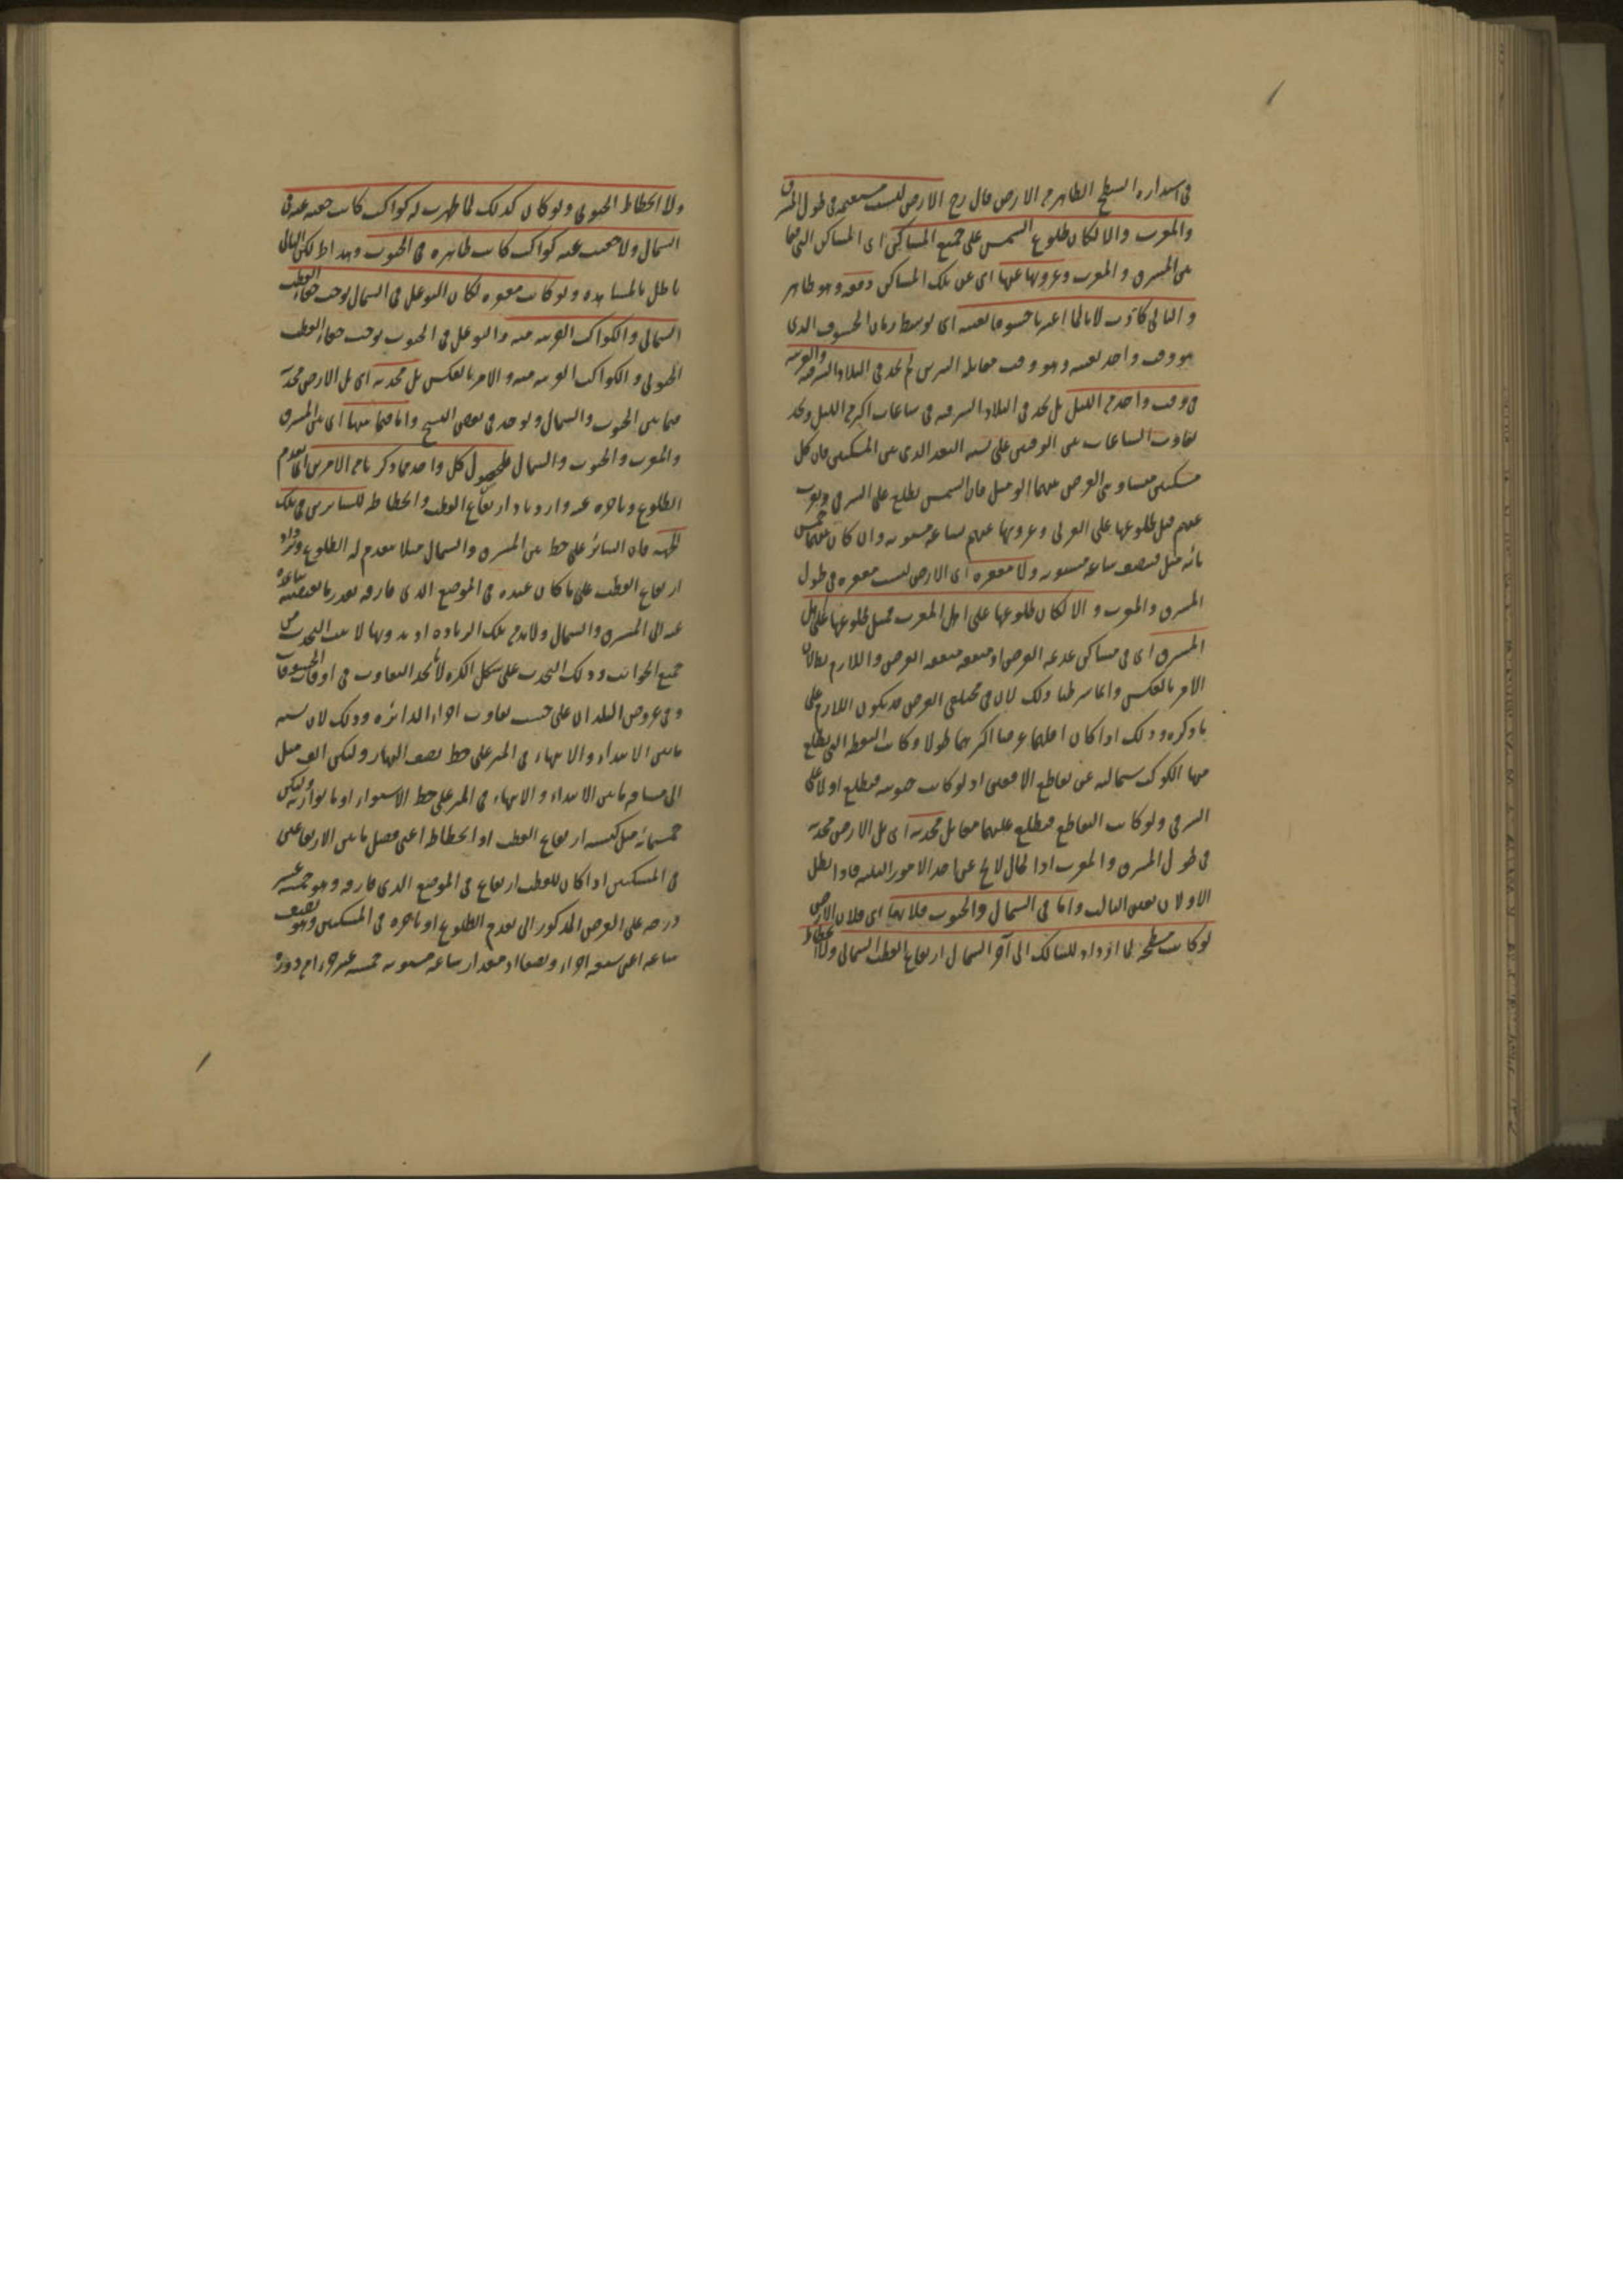 في استدارة السطح الظاهر من الارض قال رح الارض ليست مستقيمة في طول المشرق
والمغرب والا لكان طلوع الشمس على جميع المساكن اى المساكن التى فيما
بين المشرق والمغرب وغروبها عنها اى عن تلك المساكن دفعة وهو ظاهر
والتالى كاذب لانا لما اعتبرنا خسوفا بعينه اى توسط زمان الخسوف الذى
هو وقت واحد بعينه وهو وقت مقابلة النيرين لم نجد في البلاد الشرقية والغربية
في وقت واحد من الليل بل نجد في البلاد الشرقية في ساعات اكثر من الليل ونجد
تفاوت الساعات بين الوقتين على نسبة البعد الذى بين المسكنين فان كل
مسكنين متساويى العرض بينهما الف ميل فان الشمس تطلع على الشرقى وتغرب
عنهم قبل طلوعها على الغربى وغروبها عنهم بساعة مستوية وان كان بينهما خمس
مائة ميل فبنصف ساعة مستوية ولا مقعرة اى الارض ليست مقعرة في طول
المشرق والمغرب والا لكان طلوعها على اهل المغرب قبل طلوعها على اهل
المشرق اى في مساكن عديمة العرض او متفقة العرض واللازم بطلان
الامر بالعكس وانما شرطنا ذلك لان في مختلفى العرض قد يكون اللازم على
ما ذكره وذلك اذا كان اقلهما عرضا اكثرهما طولا وكانت النقطة التى يطلع
منها الكوكب شمالية عن تقاطع الافقين اذ لو كانت جنوبية فيطلع اولا على
الشرقى ولو كانت التقاطع فيطلع عليهما معا بل محدبة اى بل الارض محدبة
في طول المشرق والمغرب اذ الحال لا يخ عن احد الامور الثلثة فاذا بطل
الاولان تعين الثالث واما في الشمال والجنوب فلانها اى فلان الارض
لو كانت مسطحة لما ازداد للسالك الى آخر الشمال ارتفاع القطب الشمالى ولا انحطاط
ولا انحطاط الجنوبى ولو كان كذلك لما ظهرت له كواكب كانت خفية عنه في
الشمال ولا خفيت عنه كواكب كانت ظاهرة في الجنوب وهذا ط لكن التالى
باطل بالمشاهدة ولو كانت مقعرة لكان التوغل في الشمال يوجب خفاء القطب
الشمالى والكواكب القريبة منه والتوغل في الجنوب يوجب خفاء القطب
الجنوبى والكواكب القريبة منه والامر بالعكس بل محدبة اى بل الارض محدبة
فيما بين الجنوب والشمال ويوجد في بعض النسخ واما فيما بينها اى بين المشرق
والمغرب والجنوب والشمال فلحصول كل واحد مما ذكرنا من الامرين اى تقدم
الطلوع وتاخره عنه وازدياد ارتفاع القطب وانحطاطه للسايرين في تلك
الجهة فان السائر على خط بين المشرق والشمال مثلا يتقدم له الطلوع ويزداد
ارتفاع القطب على ما كان عنده في الموضع الذى فارقه بقدر ما يقتضيه تباعده
عنه الى المشرق والشمال ولا بد من تلك الزيادة اذ بدونها لا يثبت التحدب من
جميع الجوانب وذلك التحدب على شكل الكرة لانا نجد التفاوت في اوقات الخسوفات
وفي عروض البلدان على حسب تفاوت اجزاء الدائرة وذلك لان نسبة
ما بين الابتداء والانتهاء في السير على خط نصف النهار وليكن الف ميل
الى مسافة ما بين الابتداء والانتهاء في السير على خط الاستواء او ما يوازيه وليكن
خمسمائة ميل كنسبة ارتفاع القطب او انحطاطه اعنى فضل ما بين الارتفاعين
في المسكنين اذا كان للقطب ارتفاع في الموضع الذى فارقه وهو خمسة عشر
درجة على الفرض المذكور الى تقدم الطلوع او تاخره في المسكنين وهو نصف
ساعة اعنى سبعة اجزاء ونصفا اذ مقدار ساعة مستوية خمسة عشر جزءا من دورة